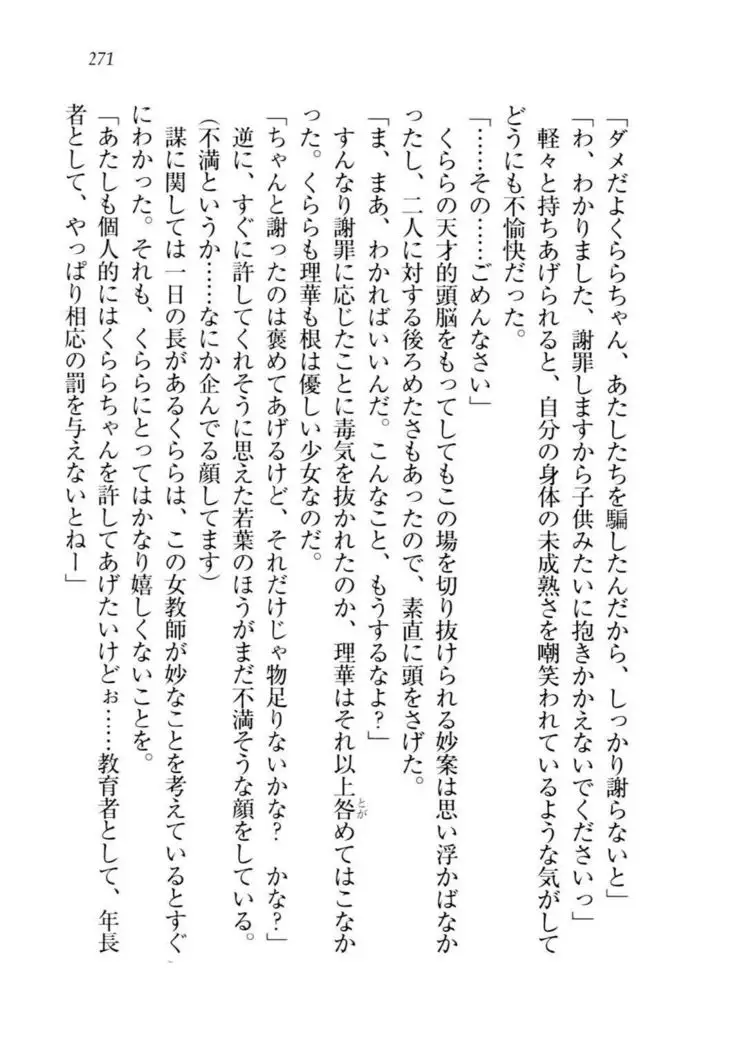 271
「ダメだよくららちゃん、あたしたちを騙したんだから、しっかり謝らないと」
「わ、わかりました、謝罪しますから子供みたいに抱きかかえないでくださいっ」
軽々と持ちあげられると、自分の身体の未成熟さを嘲笑われているような気がして
どうにも不愉快だった。
「……その……ごめんなさい」
くららの天才的頭脳をもってしてもこの場を切り抜けられる妙案は思い浮かばなか
ったし、二人に対する後ろめたさもあったので、素直に頭をさげた。
「ま、まあ、わかればいいんだ。こんなこと、もうするなよ？」
すんなり謝罪に応じたことに毒気を抜かれたのか、理華はそれ以上咎めてはこなか
とが
った。くららも理華も根は優しい少女なのだ。
「ちゃんと謝ったのは褒めてあげるけど、それだけじゃ物足りないかな？　かな？」
逆に、すぐに許してくれそうに思えた若葉のほうがまだ不満そうな顔をしている。
（不満というか……なにか企んでる顔してます）
謀に関しては一日の長があるくららは、この女教師が妙なことを考えているとすぐ
にわかった。それも、くららにとってはかなり嬉しくないことを。
「あたしも個人的にはくららちゃんを許してあげたいけどぉ……教育者として、年長
者として、やっぱり相応の罰を与えないとねー」